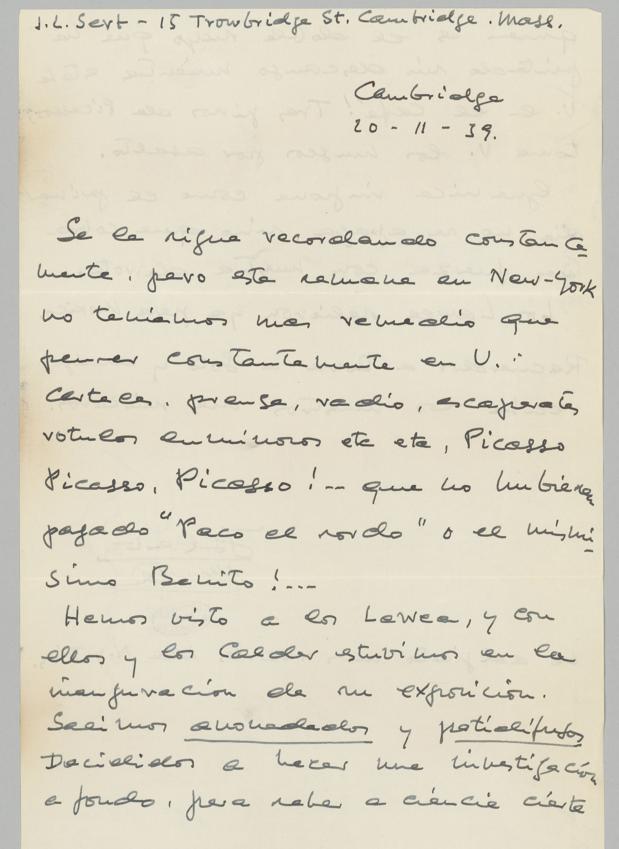 J.L. Sert - 15 Trowbridge St. Cambridge. Mass.
Cambridge
20 - 11 - 39.
Se le sigue recordando constante
mente, pero esta semana en New-York
no teniamos mas remedio que
pensar constantemente en U. :
Carteles, prensa, radio, escaparates
rotulos luminosos etc etc, Picasso
Picasso, Picasso !-- que no hubieran
pagado "Paco el sordo" o el mismi-
simo Benito !...
Hemos visto a los Lewea, y con
ellos y los Calder estuvimos en la
inauguración de su exposición.
Salimos anonadados y patidifusos
Decididos a hacer una investigación
a fondo, para saber a ciencia cierta